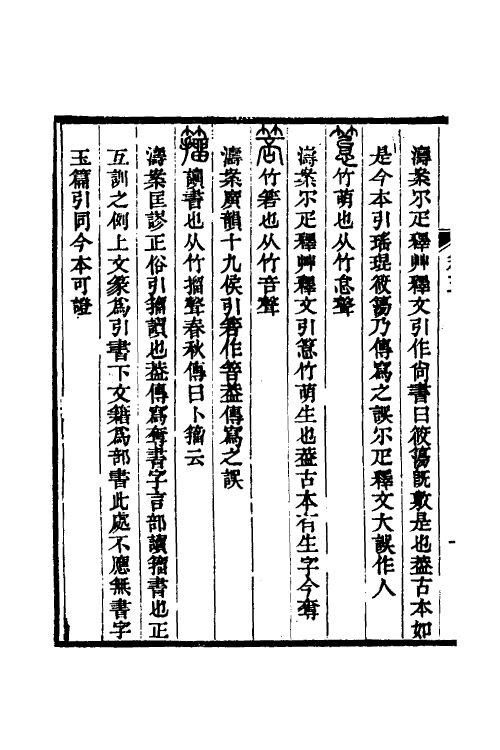 濤案尒疋釋艸釋文引作尙書曰筱簜旣敷是也葢古本如
是今本引瑤琨筱簜乃傳寫之誤尒疋釋文大誤作人
𥳑竹萌也从竹怠聲
濤案尒疋釋艸釋文引䈚竹萌生也葢古本有生字今奪
箁竹箬也从竹咅聲
濤案廣韻十九侯引箬作答葢傳寫之誤
籒讀書也从竹㩅聲春秋傳曰卜籒云
濤案匡謬正俗引籒讀也葢傳寫奪書字言部讀籒書也正
互訓之例上文篆爲引書下文籍爲部書此處不應無書字
玉篇引同今本可證